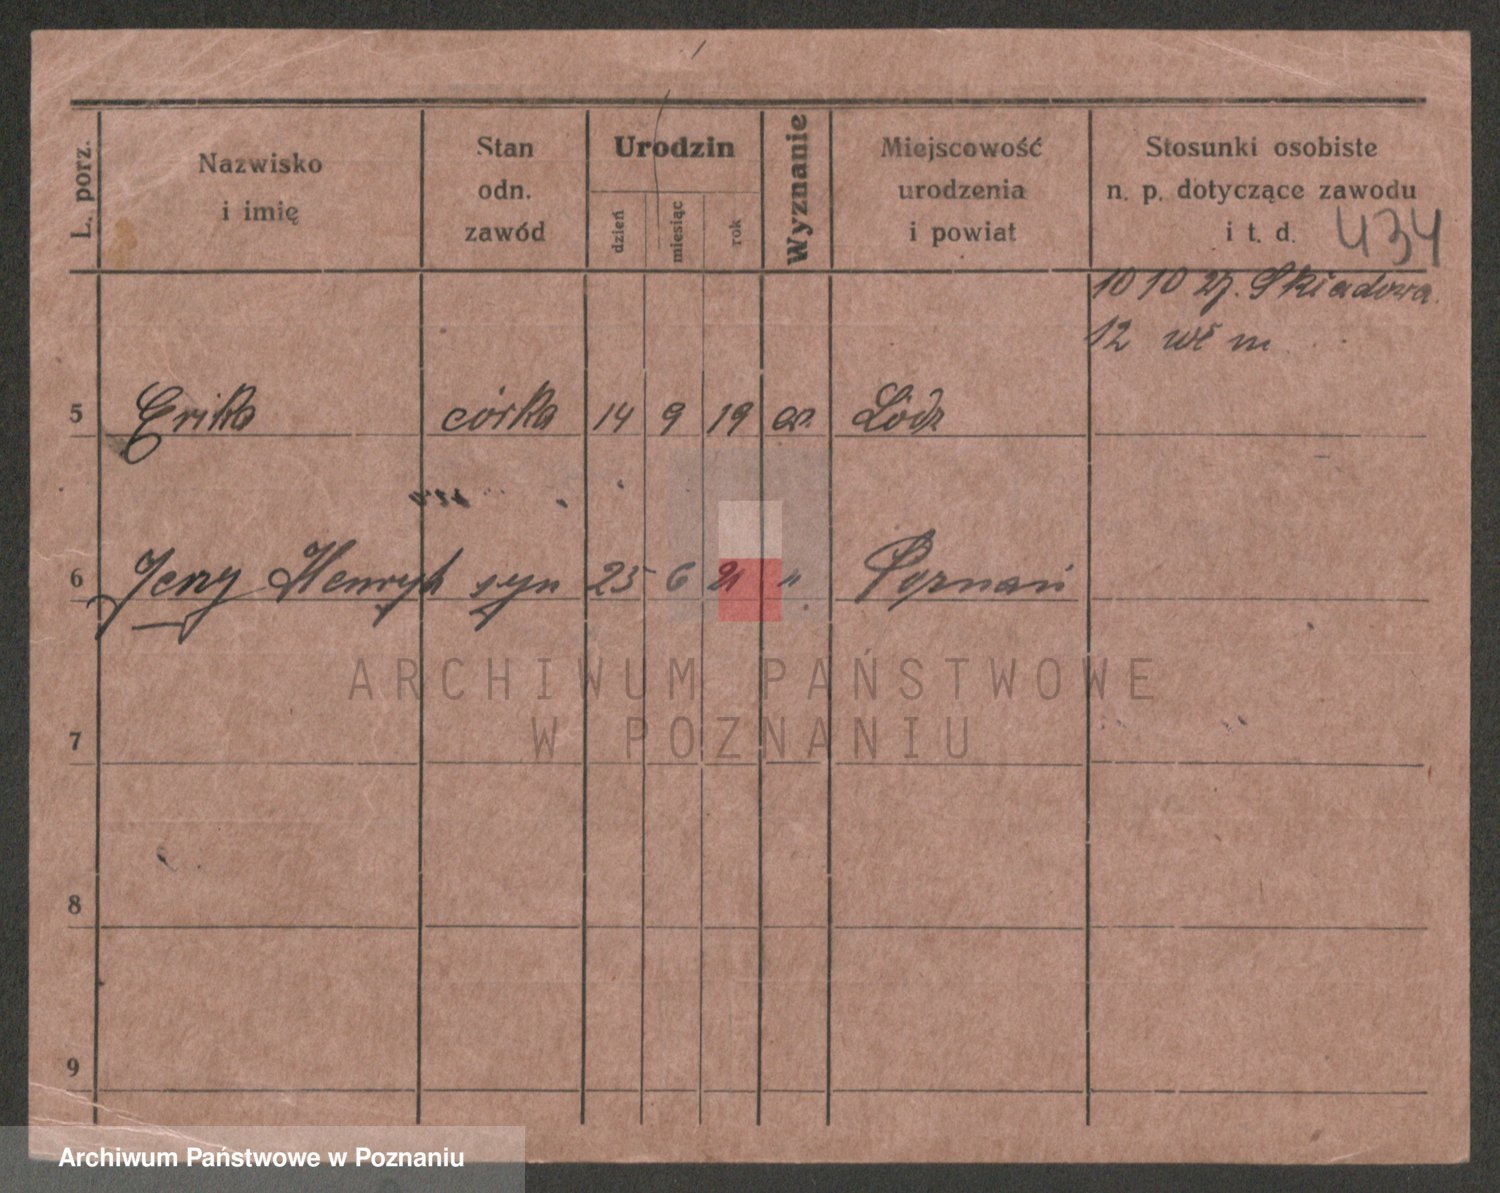 L. porz.
Nazwisko
i imię
Stan
odn.
zawód
Urodzin
dzień
miesiąc
rok
Wyznanie
Miejscowość
urodzenia
i powiat
Stosunki osobiste
n. p. dotyczące zawodu
i t. d.
434
10 10 27. Składowa
12 wł m
5 Erika córka 14 9 19 ew. Łódz
6 Jerzy Henryk syn 25 6 21 " Poznań
ARCHIWUM PAŃSTWOWE
W POZNANIU
7
8
9
Archiwum Państwowe w Poznaniu